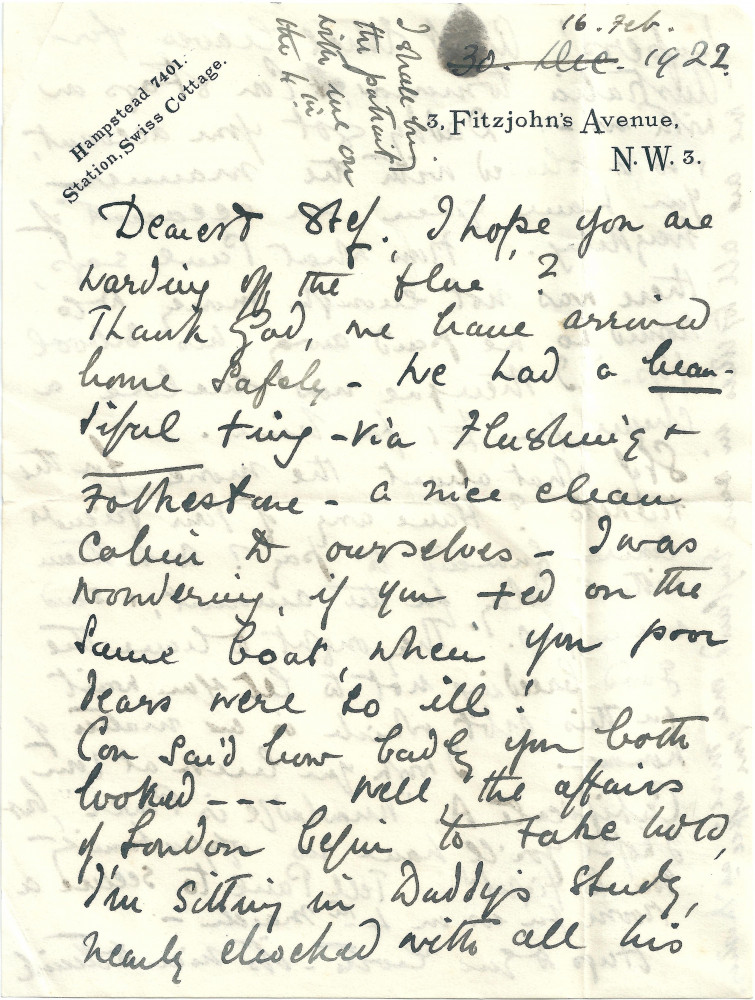 I shall bring
the portrait
with me on
the
Hampstead 7401.
Station, Swiss Cottage.
16. Feb.
30. Dec. 1922.
3, Fitzjohn's Avenue,
N.W. 3.
Dearest Stef., I hope you are
warding off the flue?
Thank God, we have arrived
home safely - We had a beau-
tiful ting - via Flushing +
Folkestone - a nice clean
Cabin to ourselves - I was
wondering, if you + ed on the
same boat, when you poor
dears were so ill!
Con said how badly you both
looked --- Well, the affairs
of London begin to take hold,
I'm sitting in Daddy's study,
nearly chocked with all his